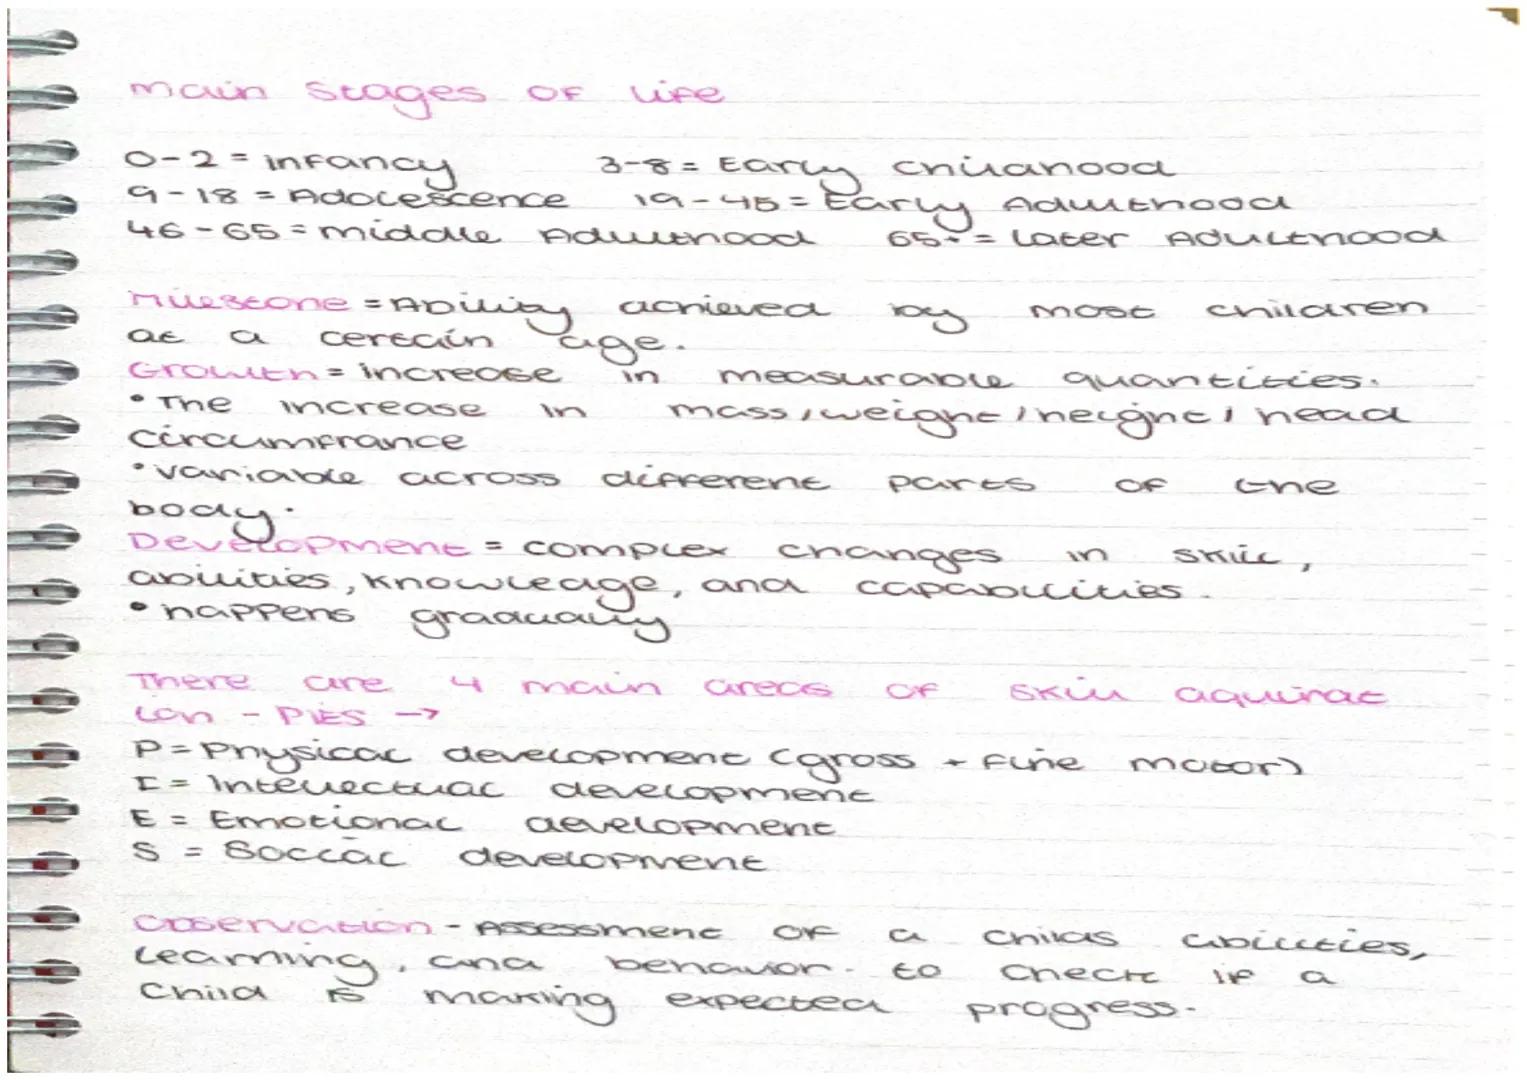 Main Stages of life
0-2 = infancy 3-8 = Early childhood
9-18 = Adolescence 19-45 = Early Adulthood
46-65 = middle Adulthood 65+ = Later Adulthood
Milestone = Ability achieved by most children
at a certain age.
Growth = increase in measurable quantities.
• The increase in mass/weight/height/head
circumfrance
• variable across different parts of the
body.
Development = complex changes in skill,
abilities, knowledge, and capabilities.
• happens gradually
There are 4 main areas of skill aquirat
ion - PIES →
P = Physical development (gross + fine motor)
I = Intellectual development
E = Emotional development
S = Social development
Observation - Assessment of a childs abilities,
learning, and behavior. to check if a
child is making expected progress.